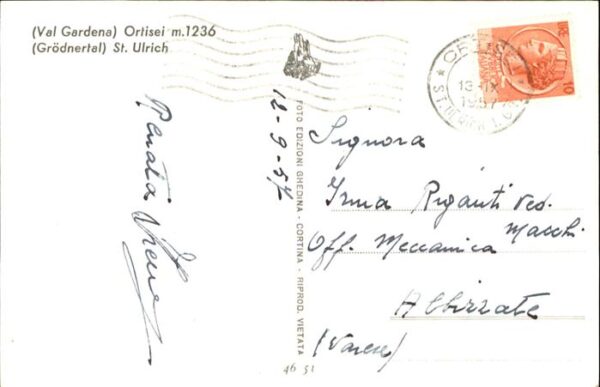 (Val Gardena) Ortisei m.1236
(Grödnertal) St. Ulrich
Renata Irene
12-9-57
FOTO EDIZIONI GHEDINA - CORTINA - RIPROD. VIETATA
13-IX
1957
10
Signora
Irma Riganti Ved.
Macchi
Off. Meccanica
Albizzate
(Varese)
46 51